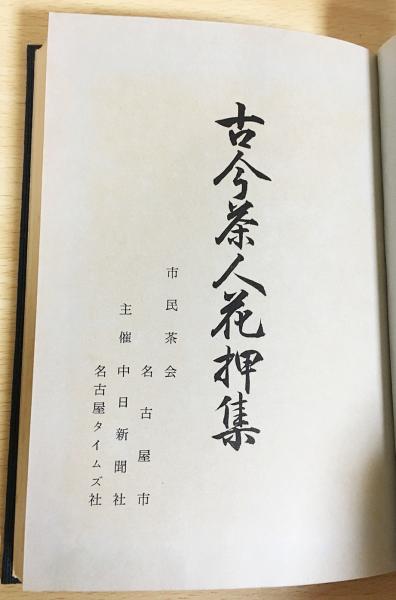 古今茶人花押集
市民茶会
名古屋市
主催 中日新聞社
名古屋タイムズ社